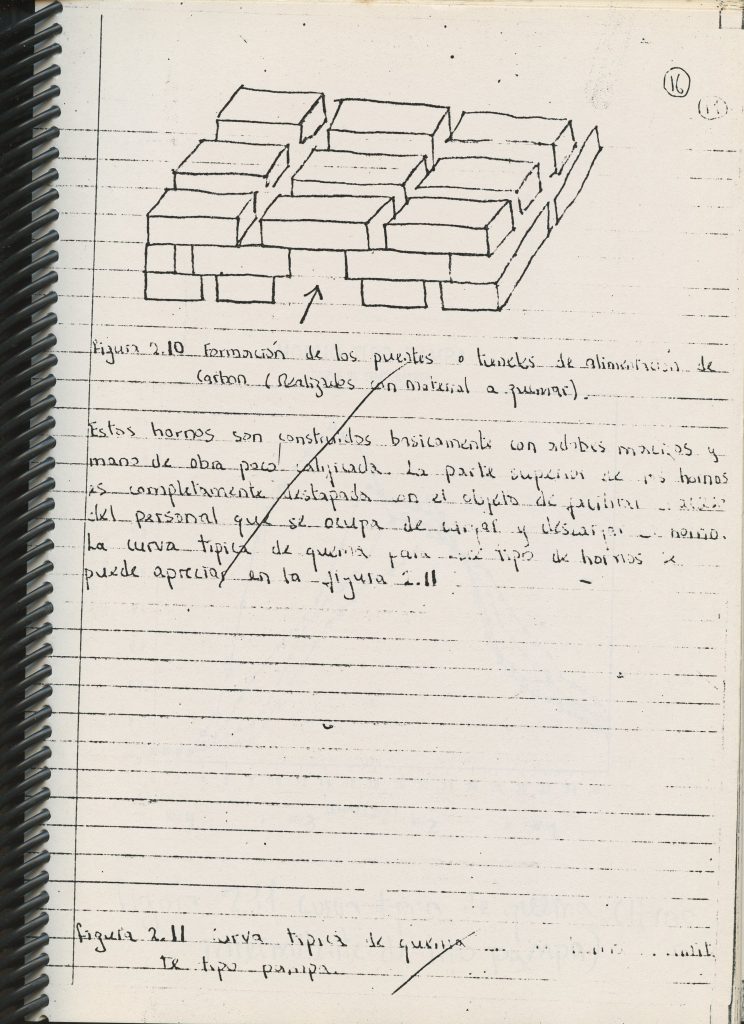 16
Figura 2.10 Formación de los puentes o tuneles de alimentación de
carbon (realizados con material a quemar).
Estos hornos son construidos basicamente con adobes macizos y
mano de obra poco calificada. La parte superior de los hornos
es completamente destapada con el objeto de facilitar
del personal que se ocupa de cargar y descargar horno.
La curva tipica de quema para este tipo de hornos se
puede apreciar en la figura 2.11
Figura 2.11 Curva tipica de quema
te tipo pampa.